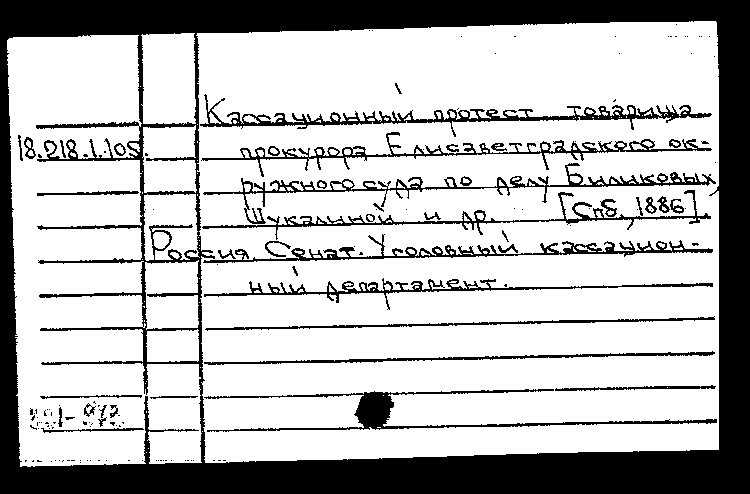 Кассационный протест товарища
18.218.1.105. прокурора Елисаветградского ок-
ружного суда по делу Биликовых,
Шукалиной и др. [Спб, 1886].
Россия. Сенат. Уголовный кассацион-
ный департамент.